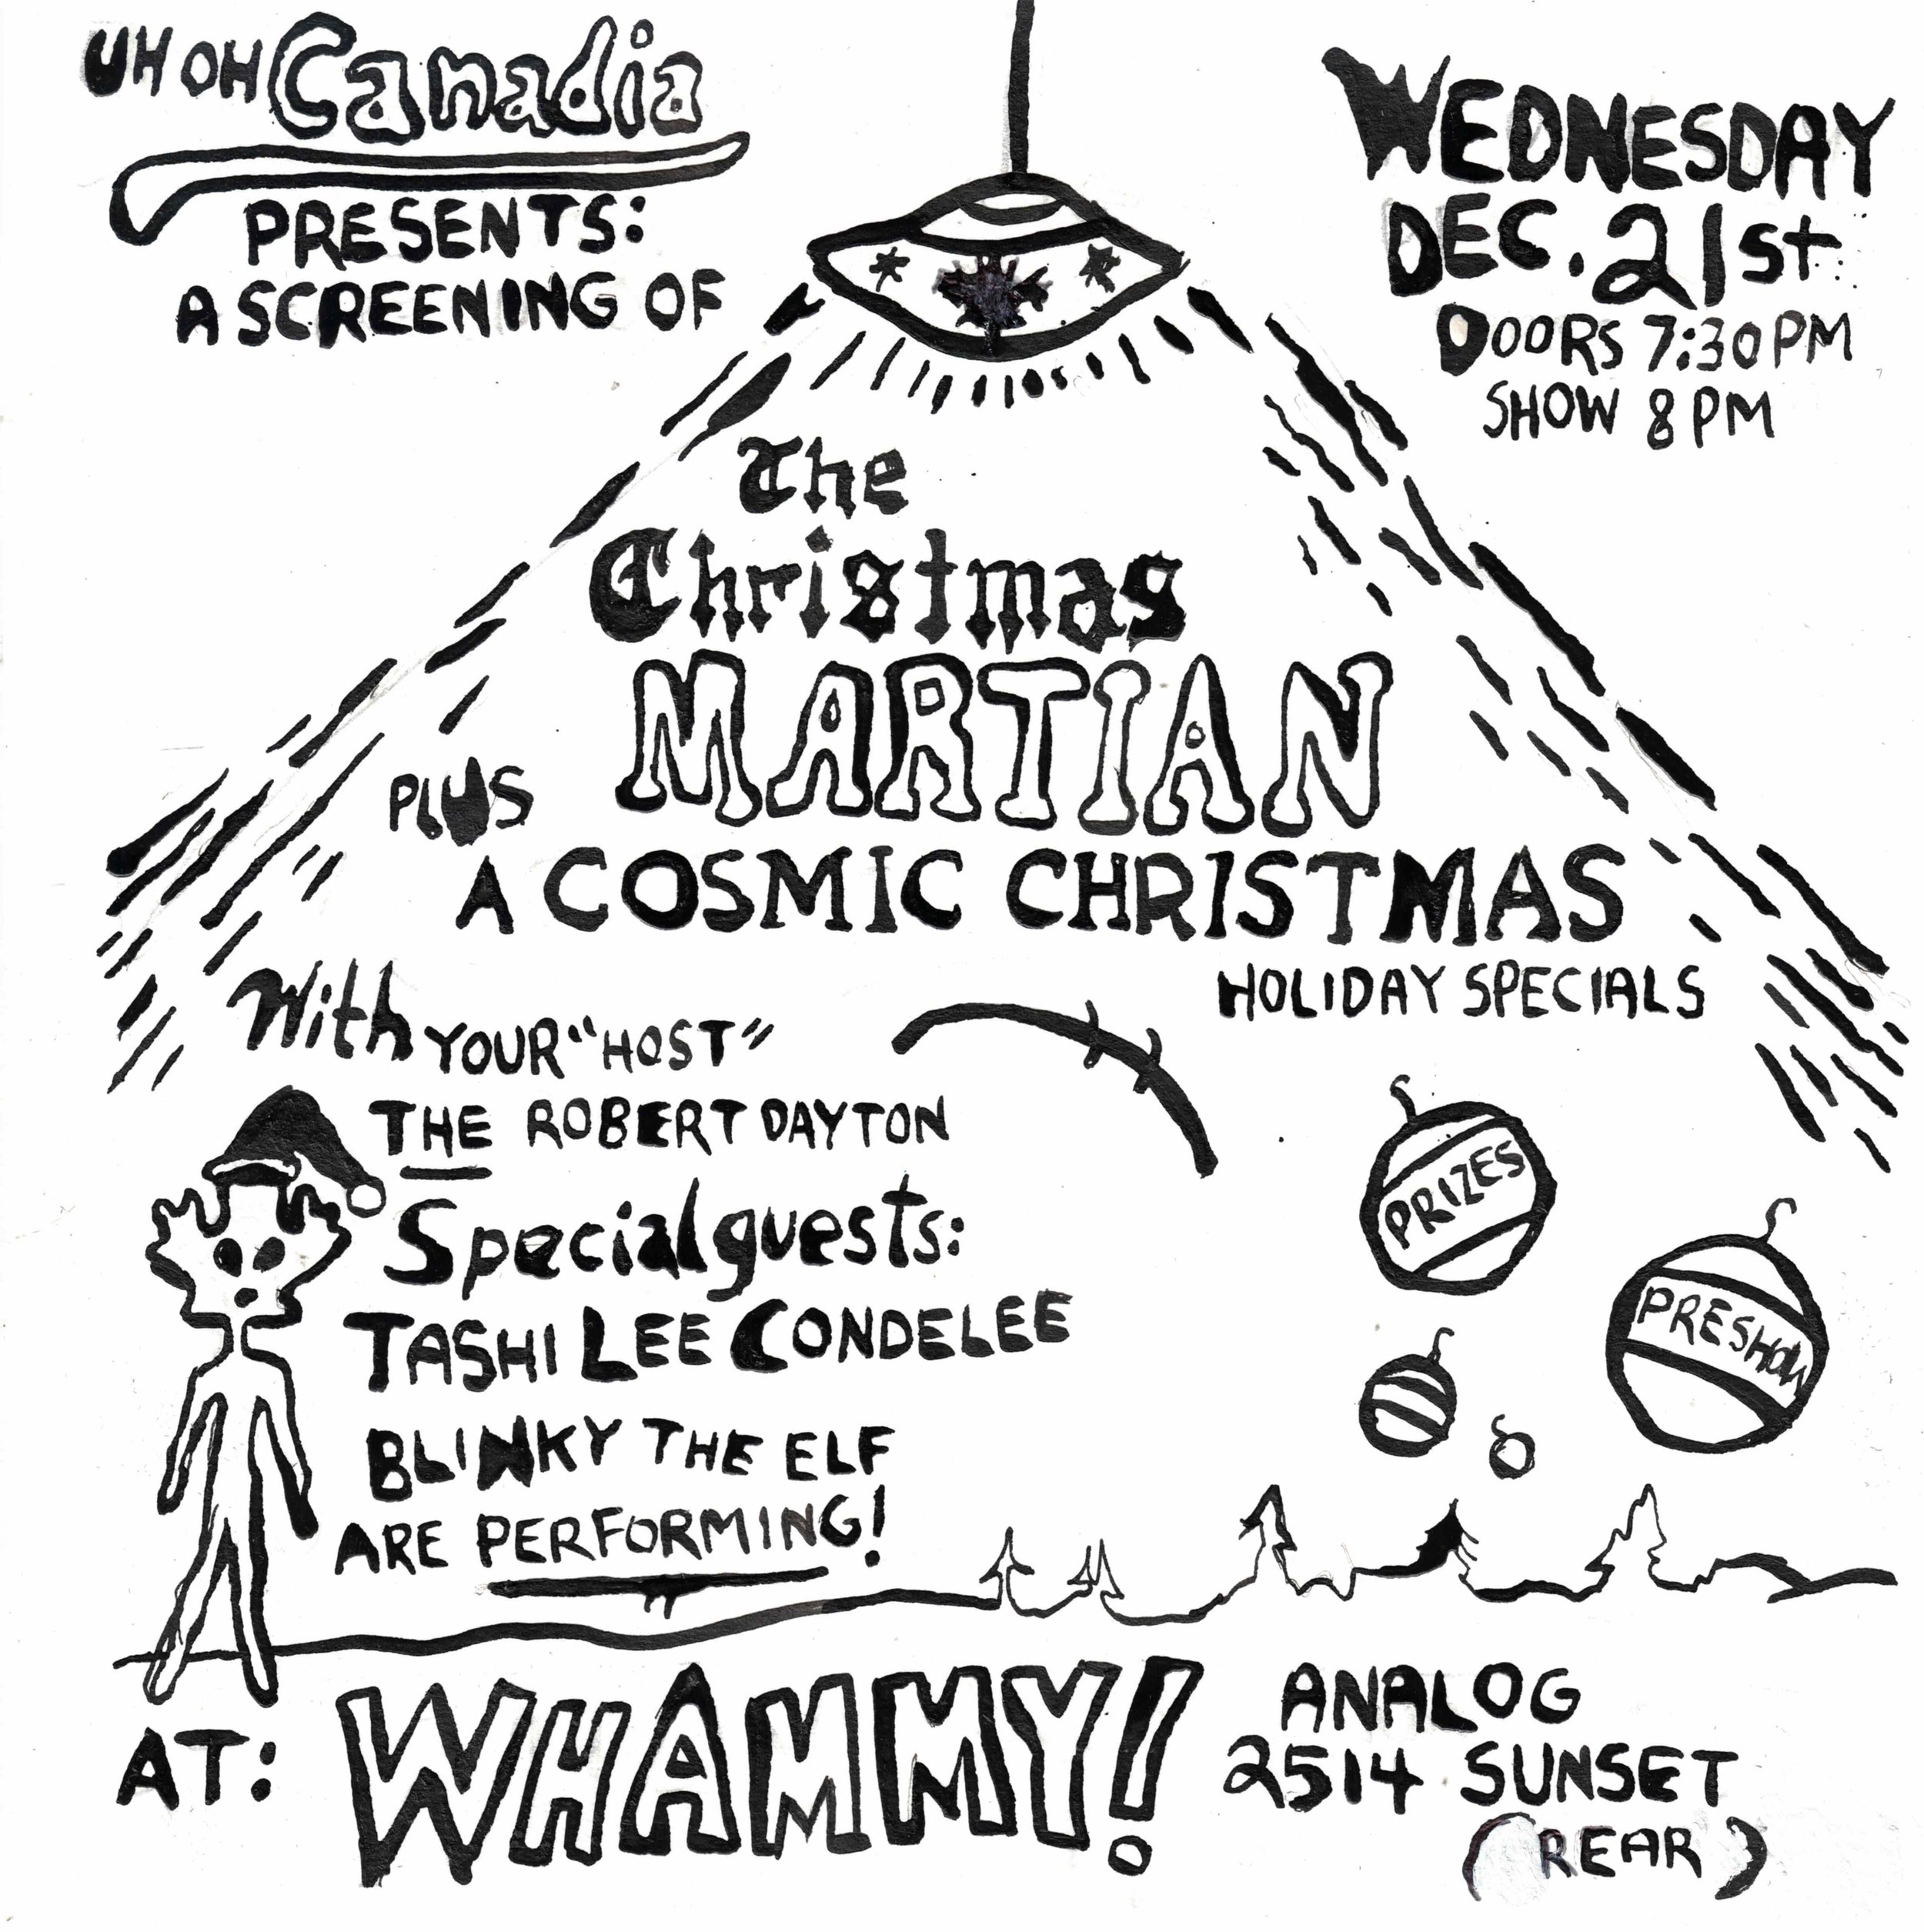 UH OH Canadia
PRESENTS:
A SCREENING OF
WEDNESDAY
DEC. 21st
DOORS 7:30PM
SHOW 8PM
The
Christmas
MARTIAN
PLUS
A COSMIC CHRISTMAS
HOLIDAY SPECIALS
With YOUR "HOST"
THE ROBERT DAYTON
Special guests:
TASHI LEE CONDELEE
BLINKY THE ELF
ARE PERFORMING!
PRIZES
PRESHOW
AT: WHAMMY!
ANALOG
2514 SUNSET
(REAR)